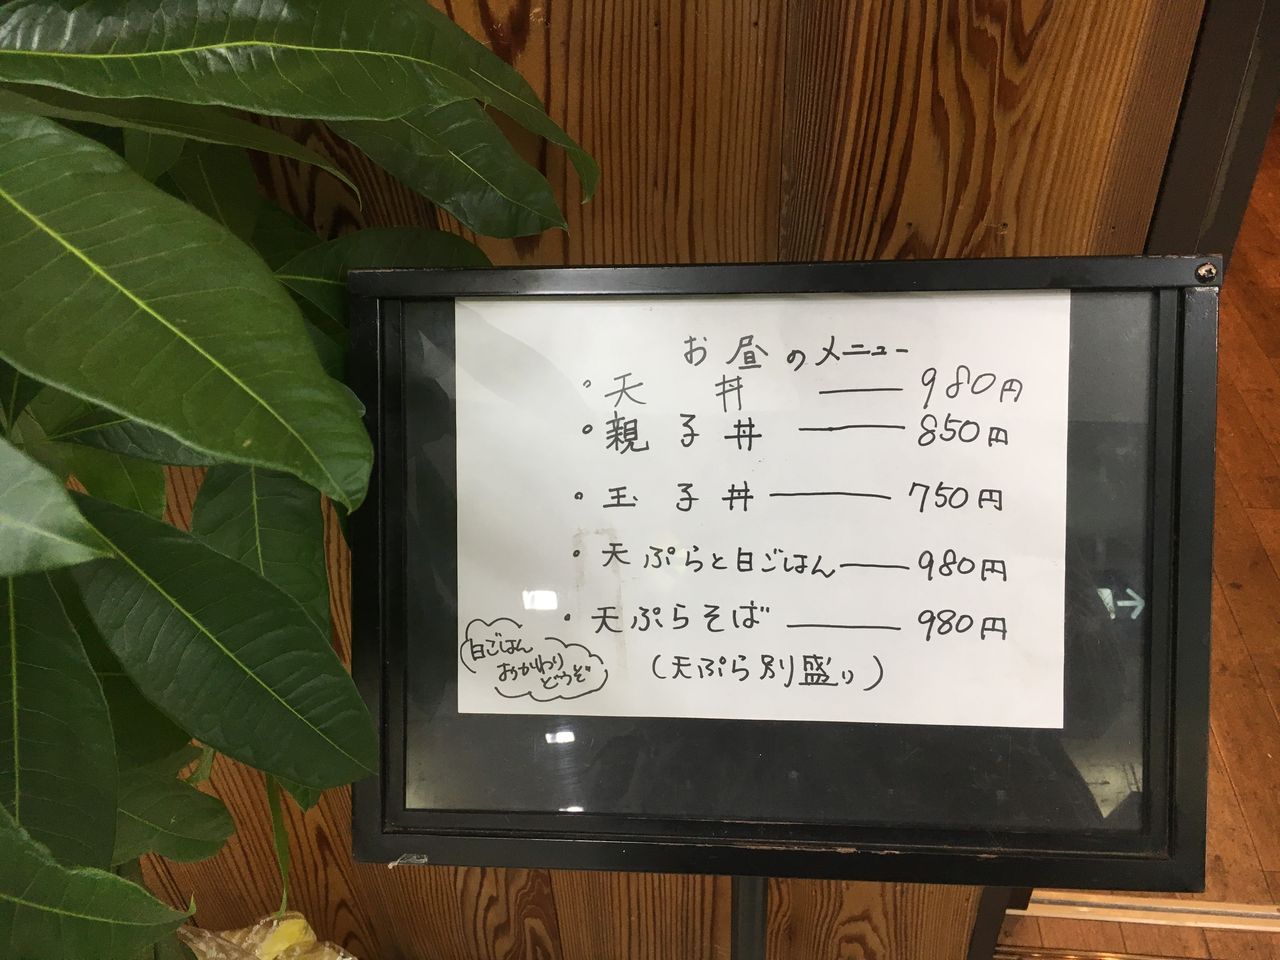 お昼のメニュー
・天丼 ― 980円
・親子丼 ― 850円
・玉子丼 ― 750円
・天ぷらと白ごはん ― 980円
・天ぷらそば ― 980円
(天ぷら別盛り)
白ごはん
おかわり
どうぞ